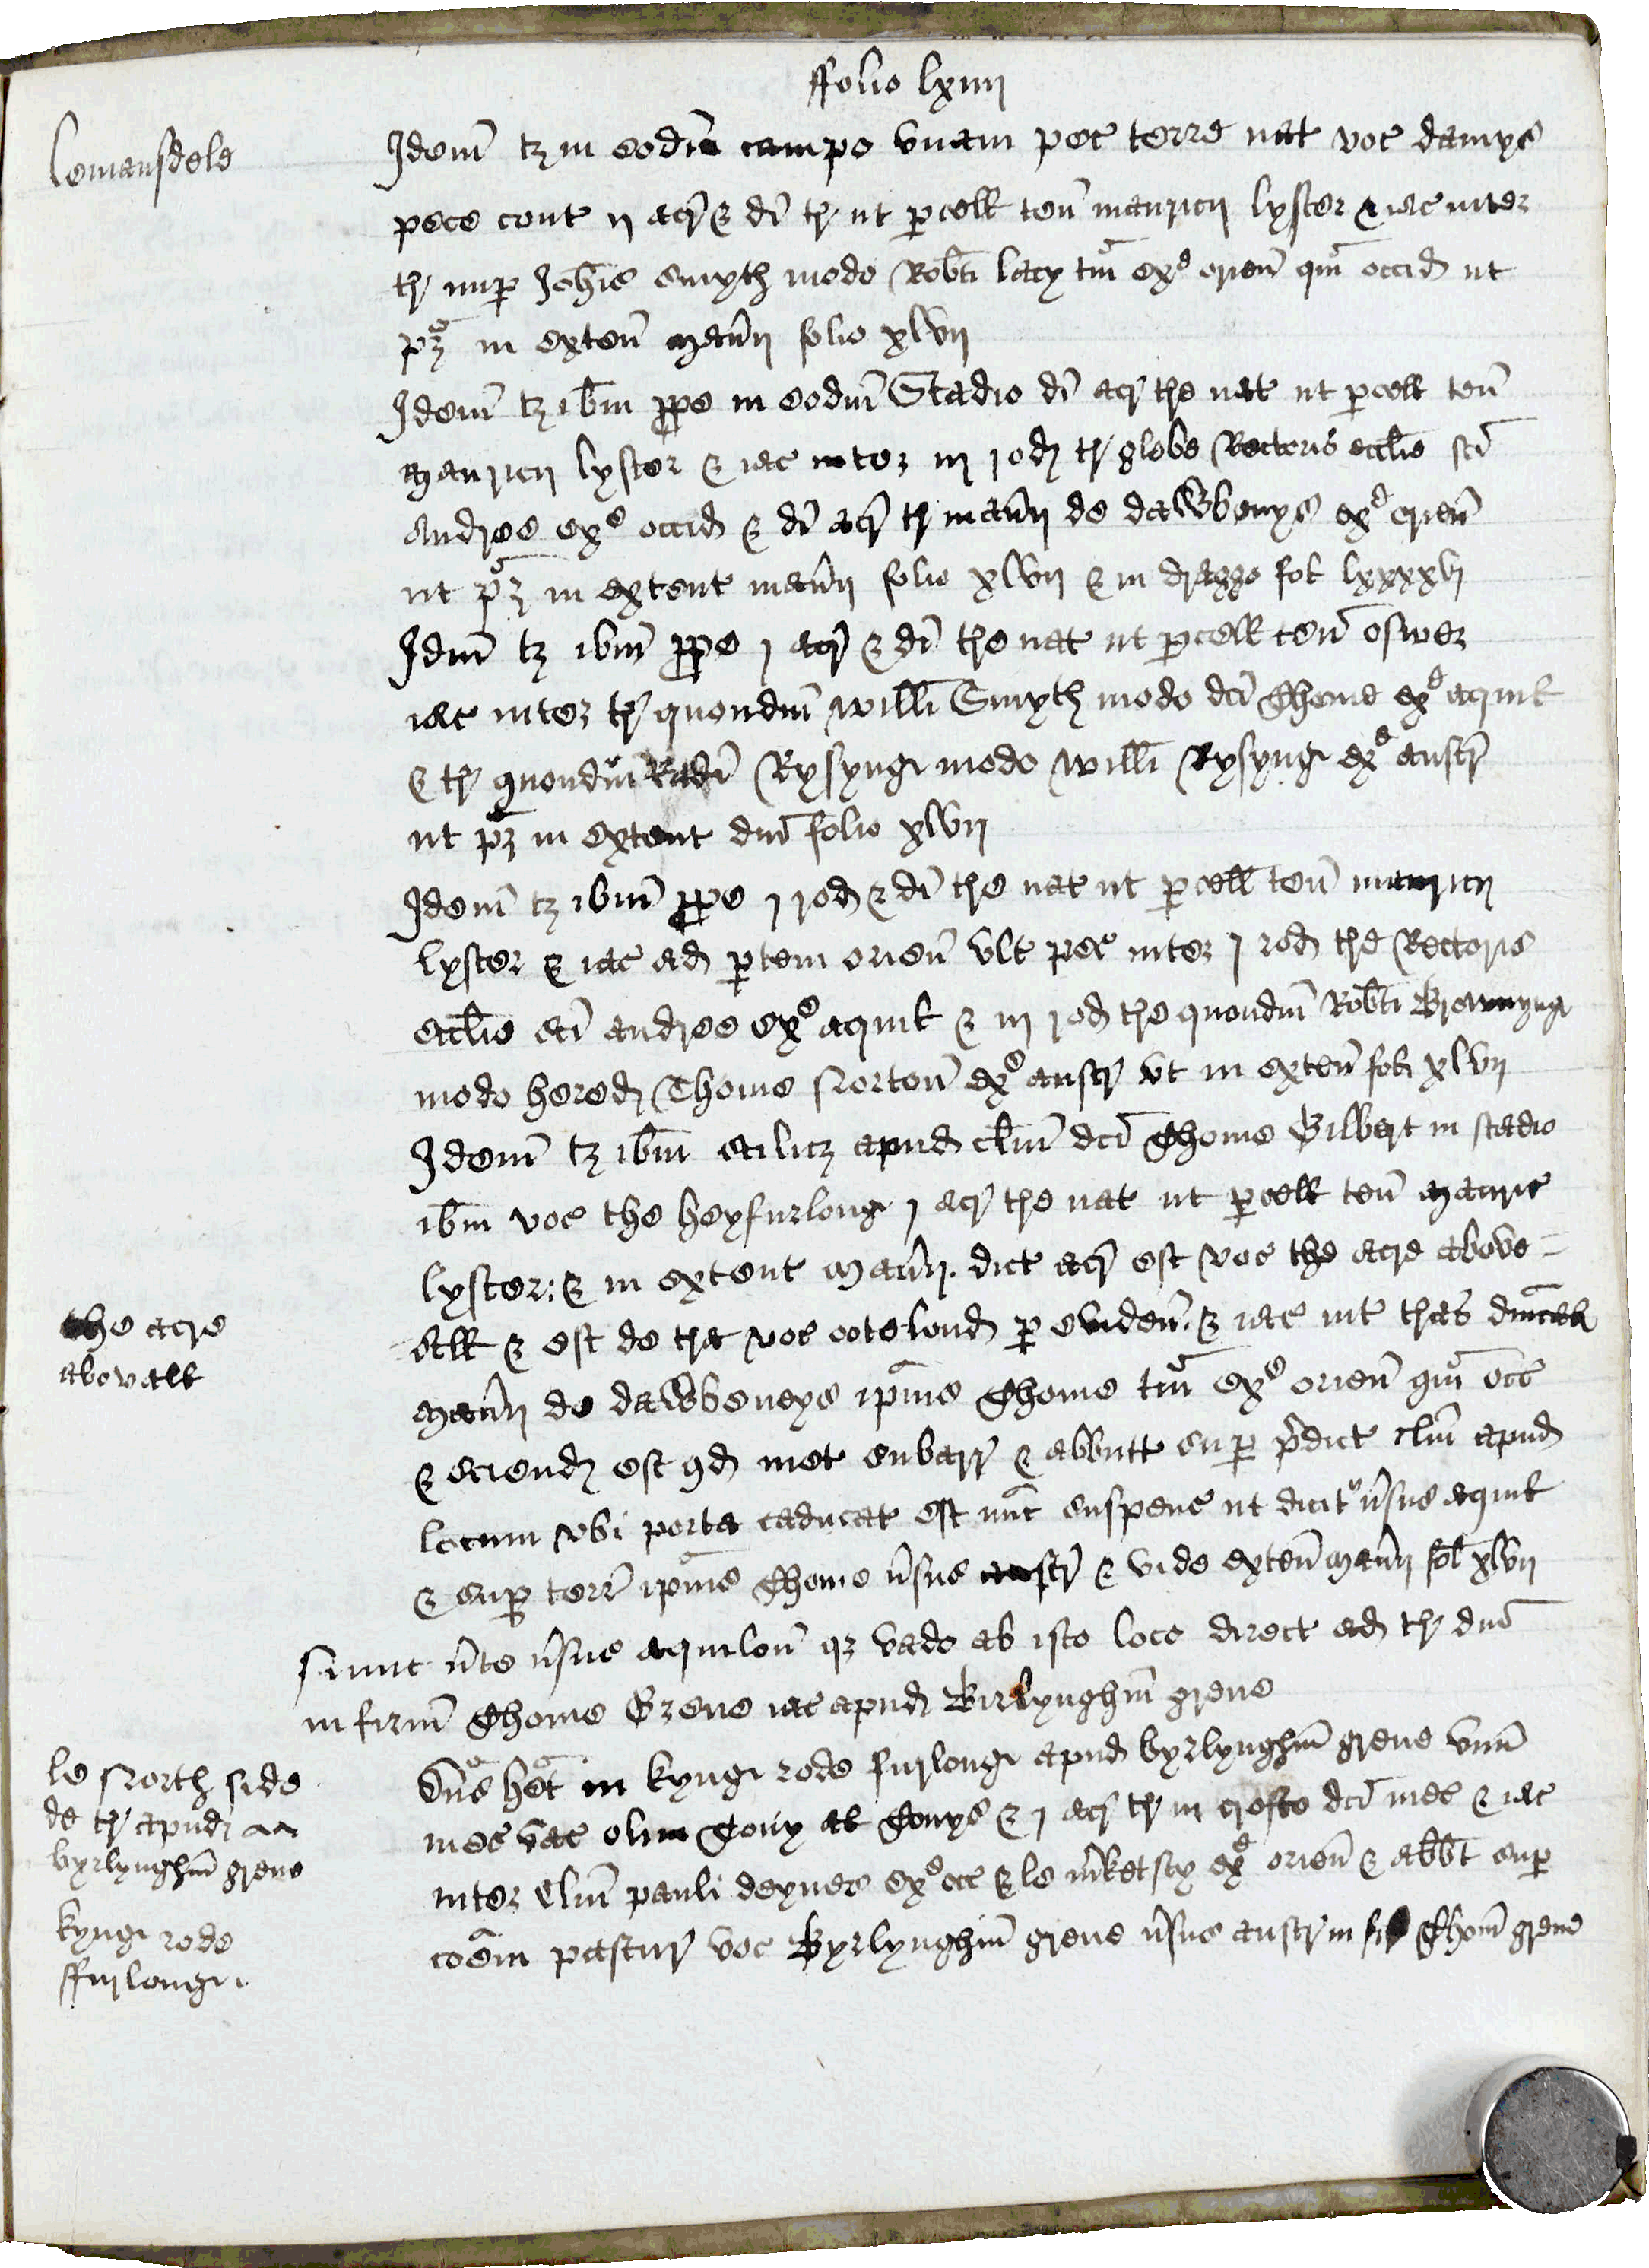 ffolio lxiiij
lomansdele
Idem tz in eodm campo unam pec terre nat voc damys
pece cont ij acr & di tr ut pcell ten mauricij lyster & iac inter
tr nup Johis smyth modo Robti lacy tm exp orien qm occid ut
pz in exten manij folio xlvij
Idem tz ibm ppe in eodm Stadio di acr tre nat ut pcell ten
mauricij lyster & iac inter iij rod tr glebe Rectoris ecclie sci
Andree exp occid & di acr tr manij de dawbenys exp orien
ut pz in extent manij folio xlvij & in dragge fol lxxxxvj
Idm tz ibm ppe j acr & di tre nat ut pcell ten
iac inter tr quondm willi Smyth modo dci Thome exp aquil
& tr quondm Rysyng modo willi Rysyng exp austr
ut pz in extent dni folio xlvij
Idem tz ibm ppe j rod & di tre nat ut pcell ten mauricij
lyster & iac ad ptem orien ult pec inter j rod tre Rectoris
ecclie sci andree exp aquil & iij rod tre quondm Robti Brownyng
modo hered Thome Norton exp austr ut in exten fol xlvij
Idem tz ibm scilicz apud clm dci Thome Gilbert in stadio
ibm voc the heyfurlong j acr tre nat ut pcell ten mauric
lyster: & in extent manij. dict acr est voc the acre above =
the acre
abovall
All & est de tra voc ootelond p eviden. & iac int tras dnical
manij de dawbeneys ipius Thome tm exp orien qm occ
& sciend est qd met subarr & abbutt sup pdict clm apud
locum ubi porta caducat est nuc suspens ut dicit vsus aquil
& sup terr ipius Thome vsus austr & vide exten manij fol xlvij
Nunc vte vsus aquilon qz vado ab isto loco direct ad tr dni
in firm Thome Grene iac apud Birlynghm grene
le North side
de tr apud
byrlynghm grene
Dns het in kyng rode furlong apud byrlynghm grene unm
mes vac olim & j acr tr in crofto dci mes & iac
inter clm pauli deynes exp occ & le mketsty exp orien & abbt sup
kyng rode
ffurlong
coem pastur voc Byrlynghm grene vsus austr in Thom grene